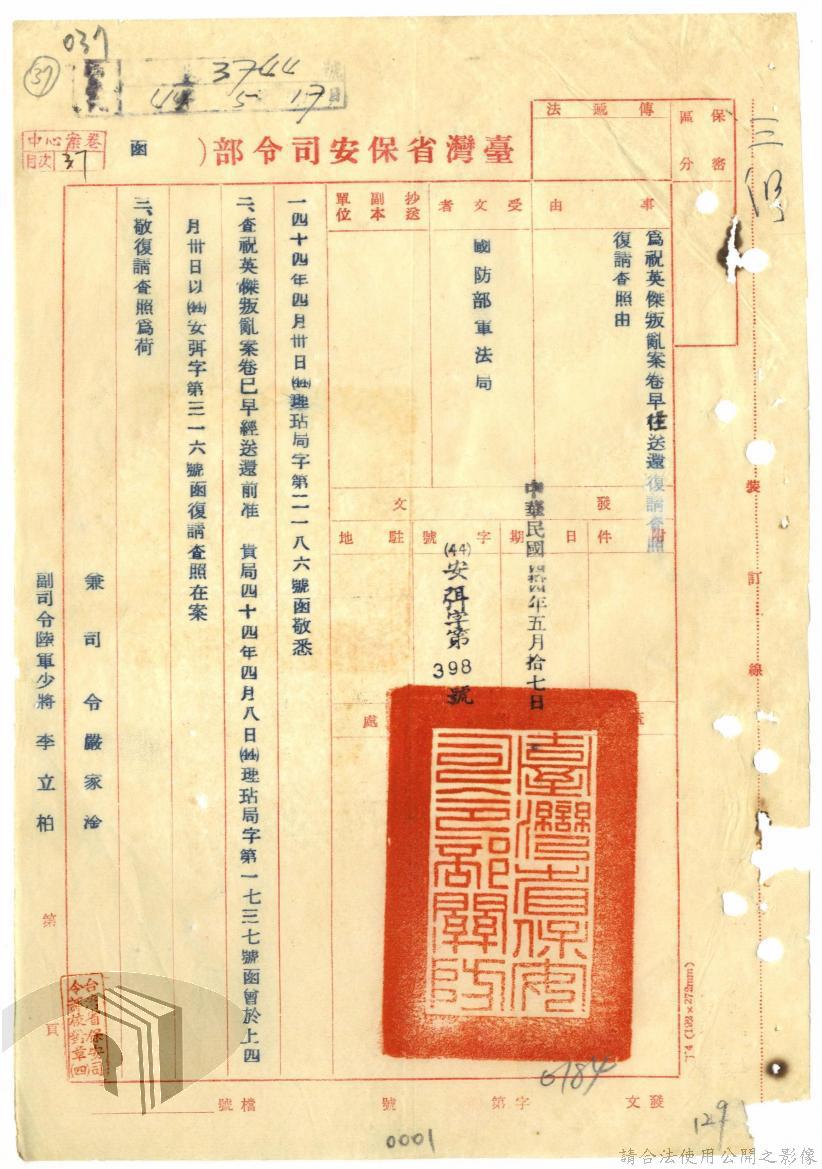 037
37
3744
44 5 17
中心案卷
目次 37
臺灣省保安司令部( 函 )
保密區分
傳遞法
三
事由
為祝英傑叛亂案卷早往送還復請查照
復請查照由
受文者
國防部軍法局
抄送副本單位
附件
發文
日期
中華民國四拾四年五月拾七日
字號
(44)安弭字第398號
駐地
臺灣省保安司令部關防
一四十四年四月卅日(44)理玷局字第二一八六號函敬悉
二、查祝英傑叛亂案卷已早經送還前准 貴局四十四年四月八日(44)理玷局字第一七三七號函曾於上四
月卅日以(44)安弭字第三一六號函復請查照在案
三、敬復請查照為荷
兼司令嚴家淦
副司令陸軍少將李立柏
第 頁
裝訂線
丁4(193×272mm)
6184
發文 字第 號 檔號
129
0001
請合法使用公開之影像